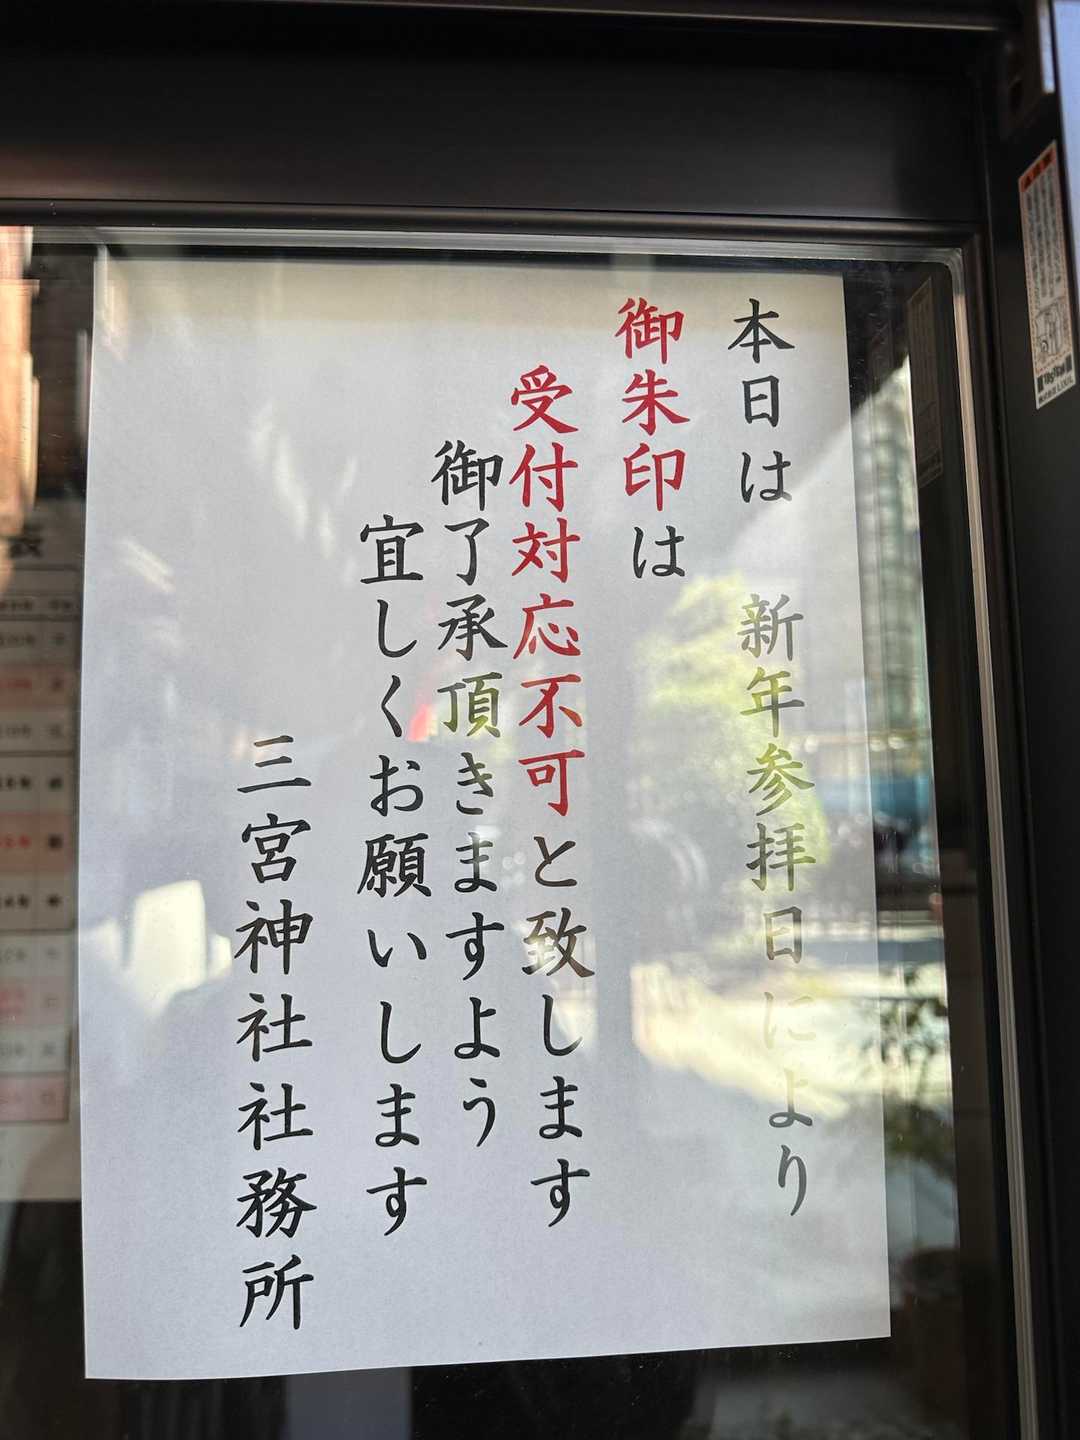 本日は　新年参拝日により
御朱印は
受付対応不可と致します
御了承頂きますよう
宜しくお願いします
三宮神社社務所